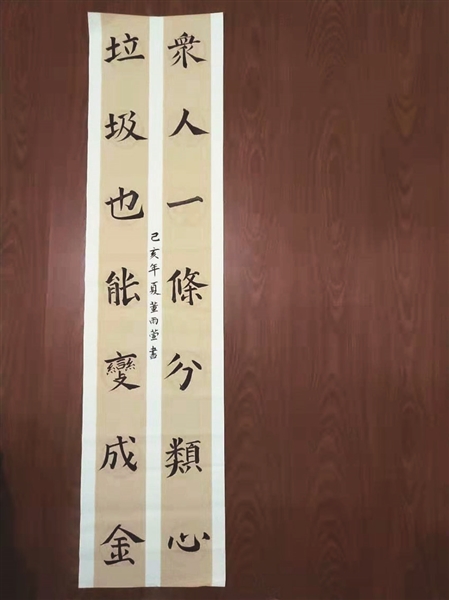 眾人一條分類心
垃圾也能變成金
己亥年夏董雨萱書